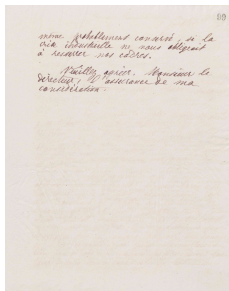 89
même probablement conservé, si la
crise industrielle ne nous obligeait
à resserrer nos cadres.
Veuillez agréer, Monsieur le
directeur, l'assurance de ma
considération.